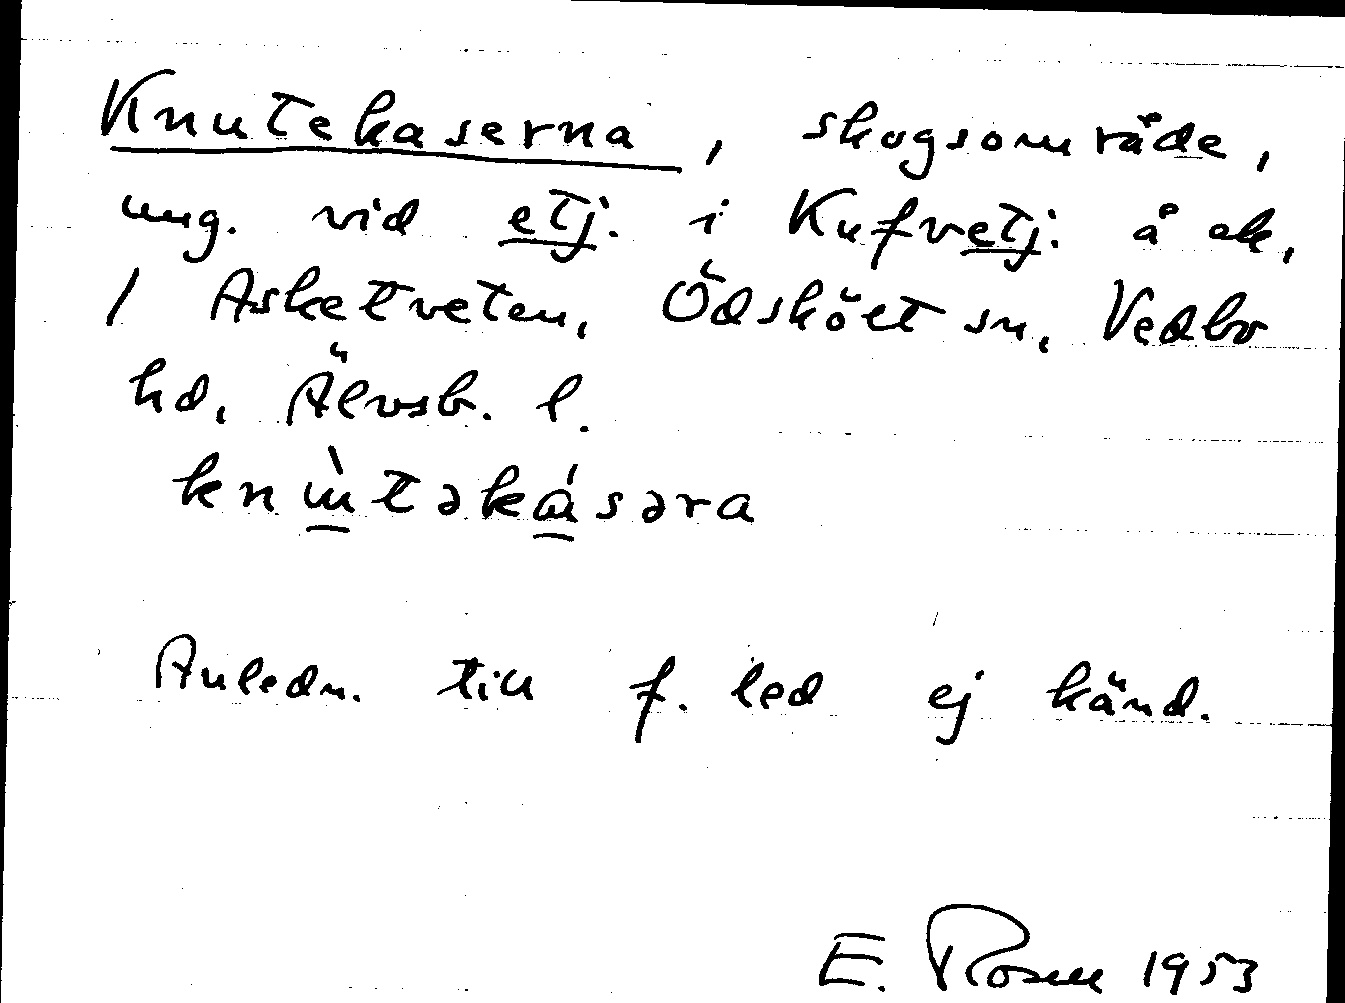 Knutekaserna, skogsområde,
ung. vid etj. i Kufvetj. å ek,
/ Asketveten, Ödskölt sn, Vedbo
hd, Älvsb. l.
knùtəkásəra
Anledn. till f. led ej känd.
E. Rosen 1953